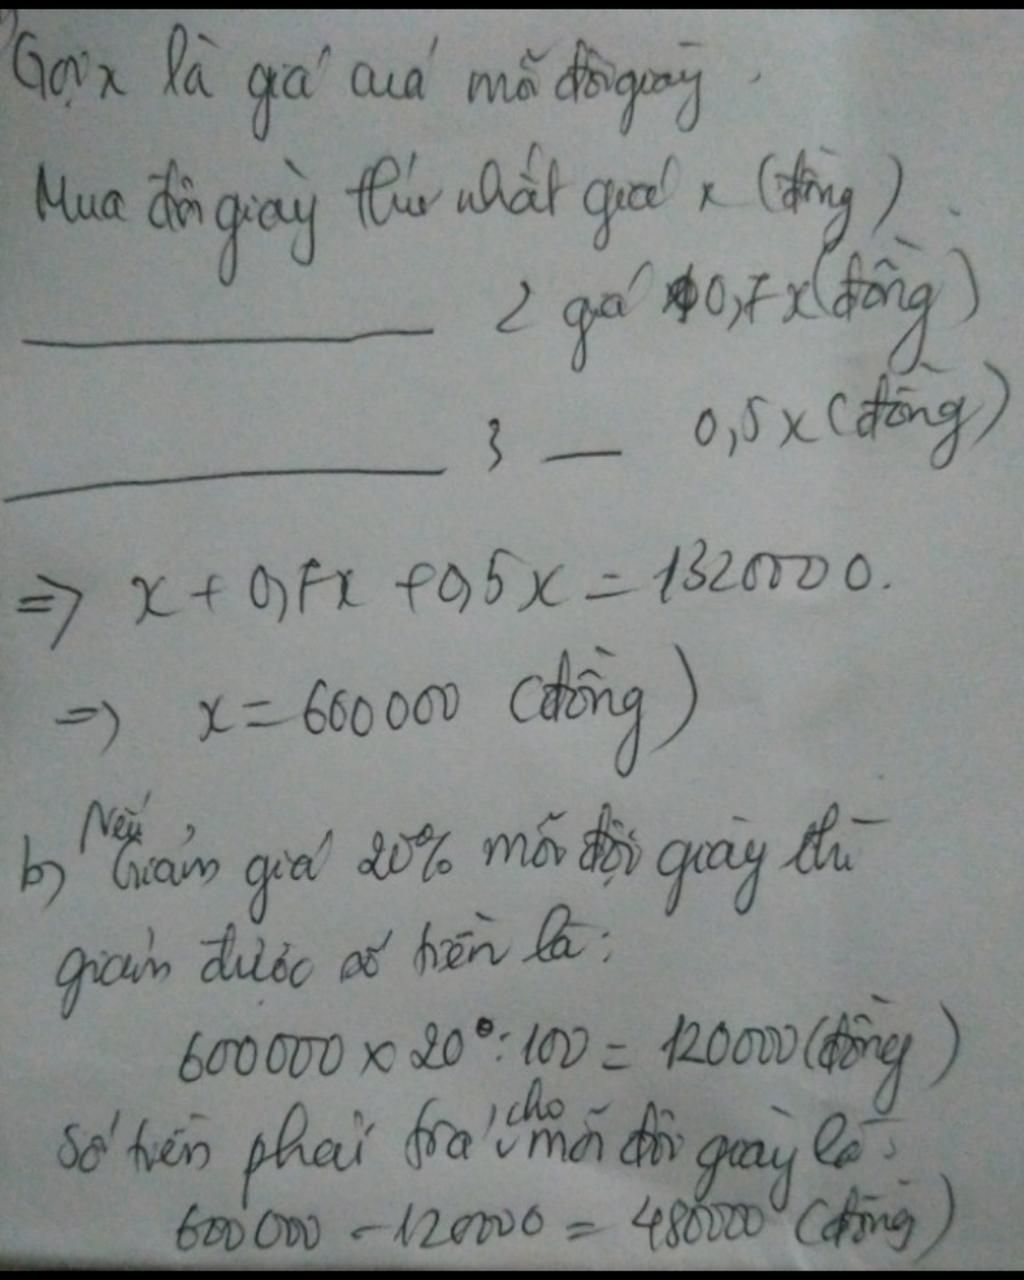 Gọi x là giá của mỗi đôi giày.
Mua đôi giày thứ nhất giá x (đồng).
2 giá 0,7x (đồng)
3 — 0,5x (đồng)
=> x + 0,7x + 0,5x = 1320000.
=> x = 600000 (đồng)
b) Nếu Giảm giá 20% mỗi đôi giày thì
giảm được số tiền là:
600000 x 20 : 100 = 120000 (đồng)
Số tiền phải trả cho mỗi đôi giày là:
600000 - 120000 = 480000 (đồng)